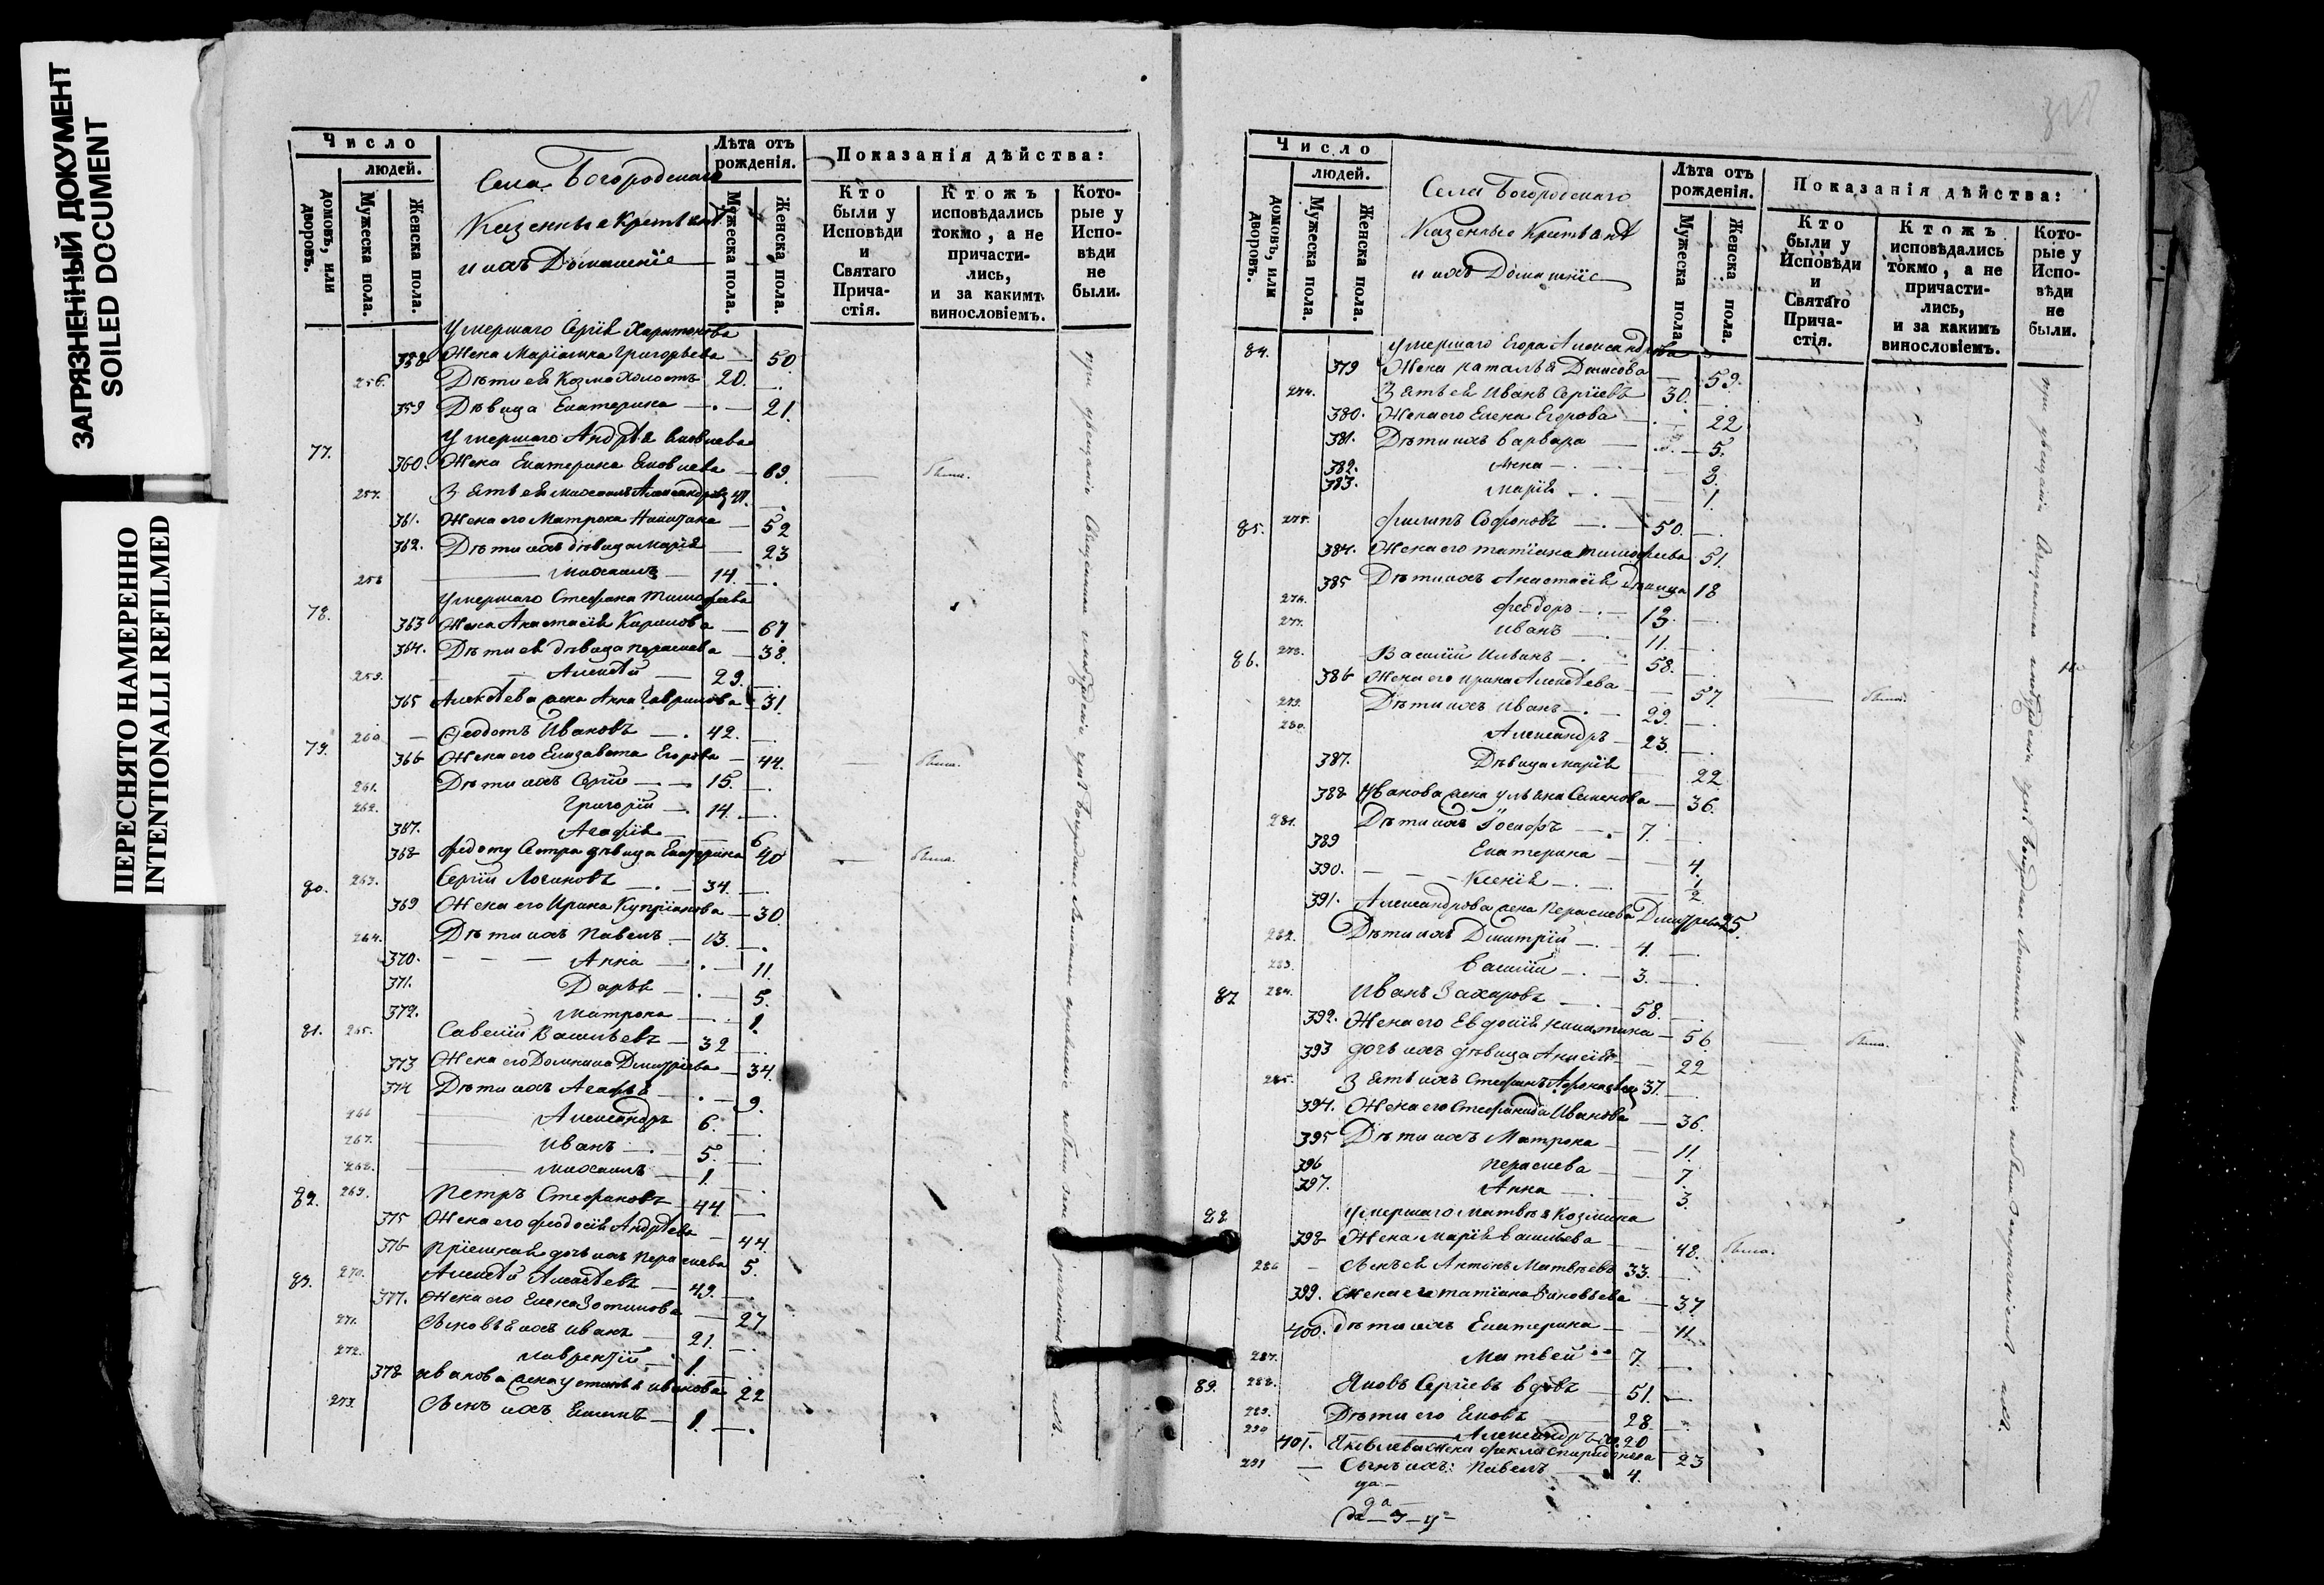 ЗАГРЯЗНЕННЫЙ ДОКУМЕНТ
SOILED DOCUMENT
ПЕРЕСНЯТО НАМЕРЕННО
INTENTIONALLI REFILMED
Число
людей.
домовъ, или дворовъ.
Мужеска пола.
Женска пола.
Села Богородскаго
Казенные Крестьяне
и ихъ Домашніе
Лѣта отъ рожденія.
Мужеска пола.
Женска пола.
Показанія дѣйства:
Кто были у Исповѣди и Святаго Прича-стія.
Ктожъ исповѣдались токмо, а не причасти-лись, и за какимъ винословіемъ.
Кото-рые у Испо-вѣди не были.
Умершаго Сергія Харитонова
358 Жена Маріамна Григорьева — 50
256. Дѣти ея Козма Холостъ 20.
359 Дѣвица Екатерина — 21.
77. Умершаго Андрѣя
360. Жена Екатерина — 69. была.
257. Зять ея Михаилъ Александровъ
361. Жена его Матрона Никитина — 52
362. Дѣти ихъ дѣвица Марія — 23
258 Михаилъ — 14.
78. Умершаго Стефана Тимофеева
363 Жена Анастасія Кирилова — 67
364. Дѣти ея дѣвица Параскева — 38.
259. Алексѣй — 29.
365 Алексѣева жена Анна Гаврилова — 31.
79. 260 Феодотъ Ивановъ — 42.
366 Жена его Елизавета Егорова — 44. была.
261. Дѣти ихъ Сергій — 15.
262. Григорій — 14.
367. Агафія — 6
368 Федоту Сестра дѣвица Екатерина 40 была.
80. 263. Сергій Логиновъ — 34.
369 Жена его Ирина Купріянова — 30
264. Дѣти ихъ Павелъ — 13.
370. Анна — 11.
371. Дарья — 5.
372. Матрона — 1.
81. 265. Савелій Васильевъ — 32
373 Жена его Домника Дмитріева — 34.
374 Дѣти ихъ Агафья — 9.
266 Александръ 6.
267. Иванъ — 5.
268. Михаилъ — 1.
82. 269. Петръ Стефановъ — 44
375 Жена его Феодосія Андрѣева — 44.
376 Пріемная дочь ихъ Параскева 5.
83. 270. Алексѣй Алексѣевъ — 49.
377. Жена его Елена Зотикова — 27
271. Сыновья ихъ Иванъ — 21.
272. Лаврентій — 1.
378 Иванова жена Устинья Иванова 22
273. Сынъ ихъ — 1.
Число
людей.
домовъ, или дворовъ.
Мужеска пола.
Женска пола.
Села Богородскаго
Казенные Крестьянѣ
и ихъ Домашніе
Лѣта отъ рожденія.
Мужеска пола.
Женска пола.
Показанія дѣйства:
Кто были у Исповѣди и Святаго Прича-стія.
Ктожъ исповѣдались токмо, а не причасти-лись, и за какимъ винословіемъ.
Кото-рые у Испо-вѣди не были.
84. Умершаго Егора Александрова
379 Жена Наталья Денисова — 59.
274. Зять ея Иванъ Сергіевъ 30.
380. Жена его Елена Егорова — 22
381. Дѣти ихъ Варвара — 5.
382. Анна — 3.
383. Марія — 1.
85. 275. Филипъ Софоновъ — 50.
384. Жена его Татіана Тимофеева 51.
385 Дѣти ихъ Анастасія дѣвица 18
276. Феодоръ — 13.
277. Иванъ — 11.
86. 278. Василій Ильинъ — 58.
386 Жена его Ирина Алексѣева — 57. была.
279. Дѣти ихъ Иванъ — 29.
280. Александръ — 23.
387. Дѣвица Марія — 22
388 Иванова жена Ульяна Семенова — 36.
281. Дѣти ихъ Іосифъ — 7.
389 Екатерина — 4.
390. Ксенія — 1/2.
391. Александрова жена Параскева Дмитрева 25.
282. Дѣти ихъ Дмитрій — 4.
283. Василій — 3.
87 284. Иванъ Захаровъ — 58.
392. Жена его Евдокія Никитина — 56 была.
393 Дочь ихъ дѣвица Анисія — 22
285. Зять ихъ Стефанъ Афонасьевъ 37.
394. Жена его Стефанида Иванова — 36.
395 Дѣти ихъ Матрона — 11.
396 Параскева — 7.
397. Анна — 3.
88 Умершаго Матвѣя Козмина
398 Жена Марія Васильева — 48. была.
286 Сынъ ея Антонъ Матвѣевъ 33.
399. Жена его Татіана — 37
400. Дѣти ихъ Екатерина — 11.
287. Матвей — 7.
89. 288. Яковъ Сергіевъ вдовъ — 51.
289. Дѣти его Яковъ — 28.
290 Александръ 20
401. Яковлева жена Фекла Спиридонова 23
291 Сынъ ихъ: Павелъ — 4.